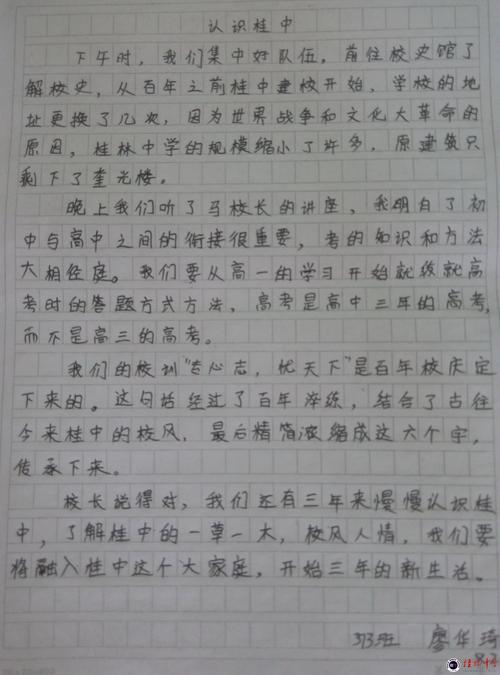 认识桂中
下午时，我们集中好队伍，前往校史馆了
解校史，从百年之前桂中建校开始，学校的地
址更换了几次，因为世界战争和文化大革命的
原因，桂林中学的规模缩小了许多，原建筑只
剩下了奎光楼。
晚上我们听了马校长的讲座，我明白了初
中与高中之间的衔接很重要，考的知识和方法
大相径庭。我们要从高一的学习开始就练就高
考时的答题方式方法，高考是高中三年的高考，
而不是高三的高考。
我们的校训"专心志，忧天下"是百年校庆定
下来的。这句话经过了百年淬练，结合了古往
今来桂中的校风，最后精简浓缩成这六个字，
传承下来。
校长说得对，我们还有三年来慢慢认识桂
中，了解桂中的一草一木，校风人情，我们要
将融入桂中这个大家庭，开始三年的新生活。
313班 廖华琦
8.2